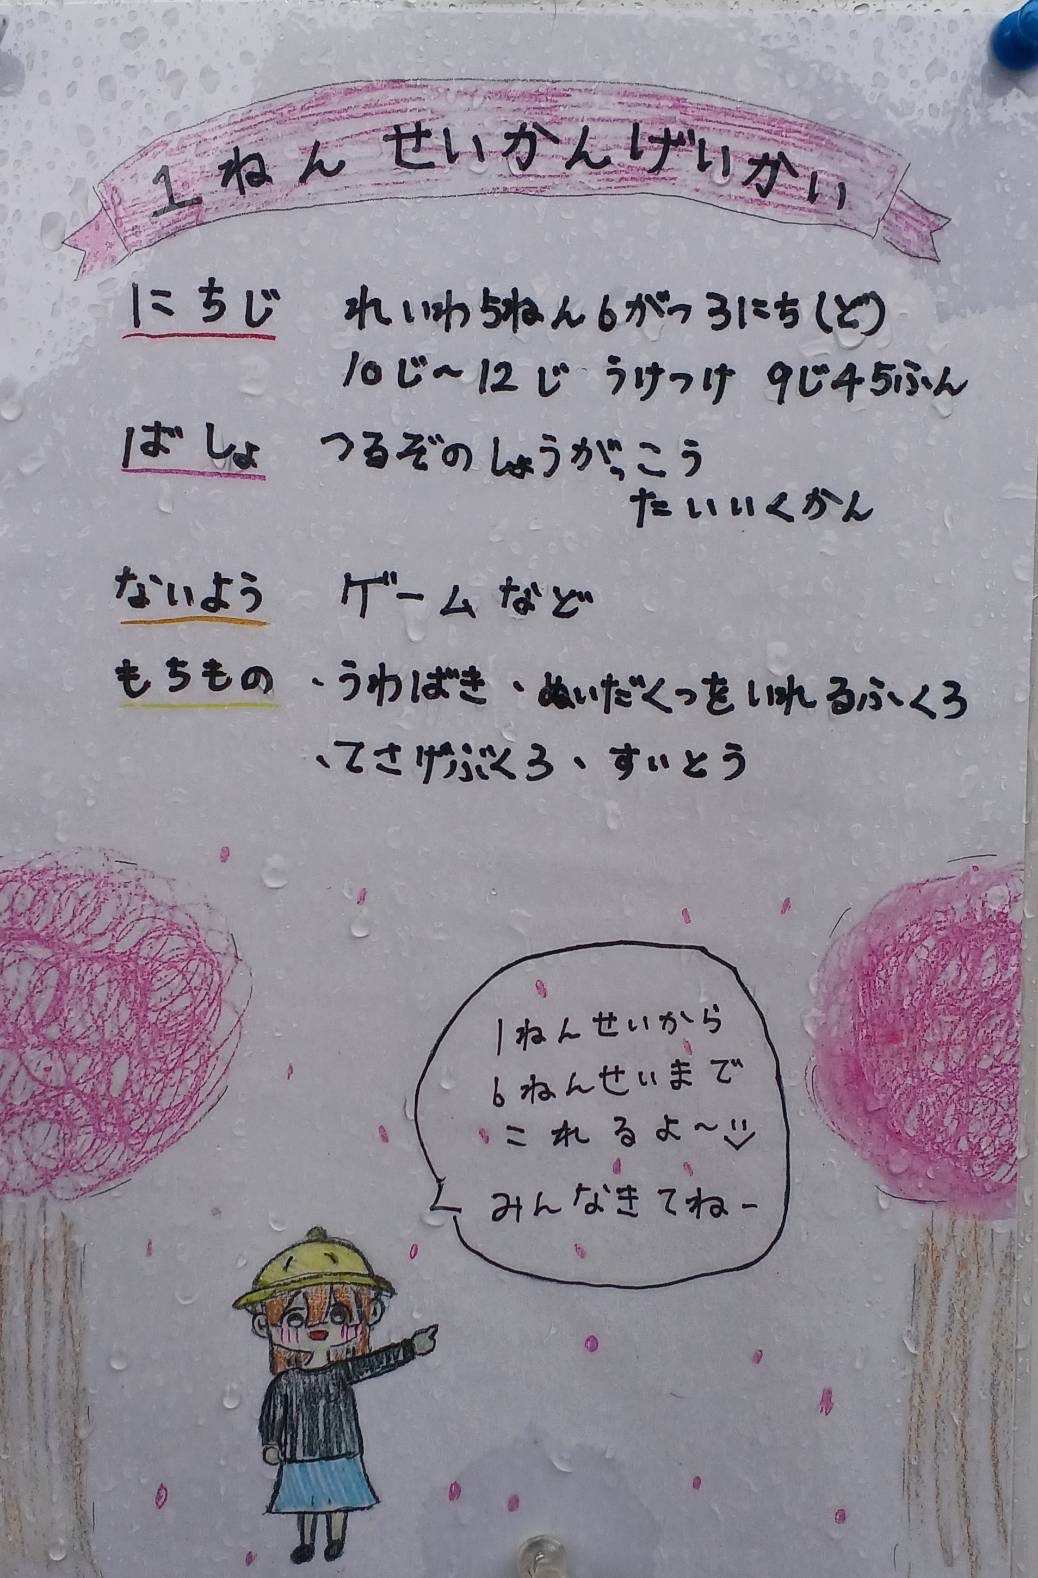 1ねんせいかんげいかい
にちじ れいわ5ねん6がつ3にち(ど)
10じ~12じ うけつけ 9じ45ふん
ばしょ つるぞのしょうがっこう
たいいくかん
ないよう ゲームなど
もちもの 、うわばき、ぬいだくつをいれるふくろ
、てさげぶくろ、すいとう
1ねんせいから
6ねんせいまで
これるよ~
みんなきてねー